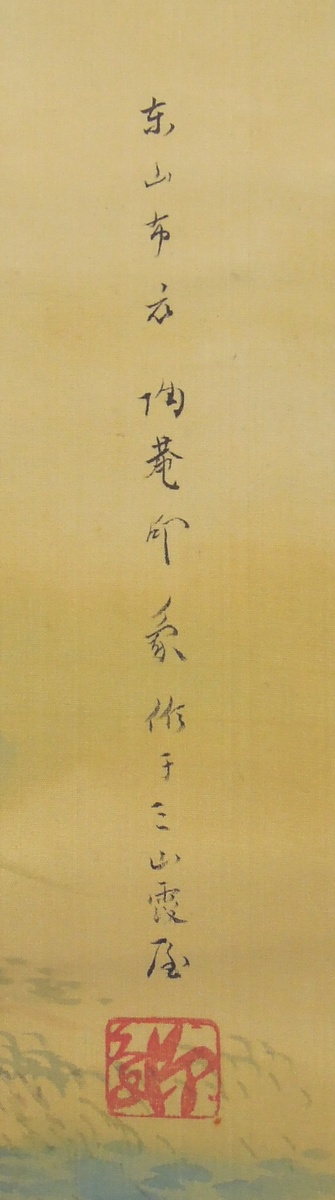 东山布衣陶菴印象作于三山霞屋